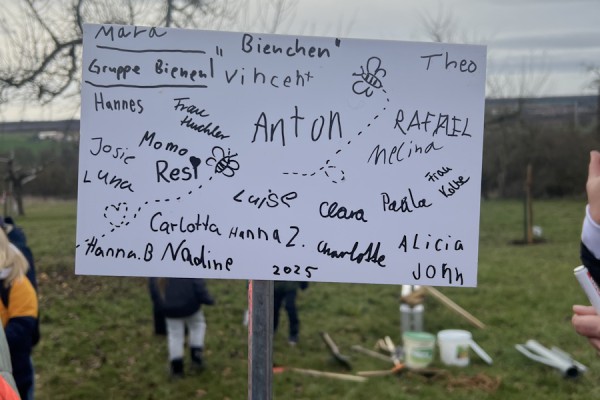 Mara
"Bienchen"
Theo
Gruppe Bienen!
Vincent
Hannes
Frau
Huchler
Anton
RAFAEL
Josie
Momo
Melina
Luna
Resi
Frau
Kolbe
Luise
Clara
Paula
Carlotta
Hanna Z.
Charlotte
Alicia
Hanna.B
Nadine
2025
John